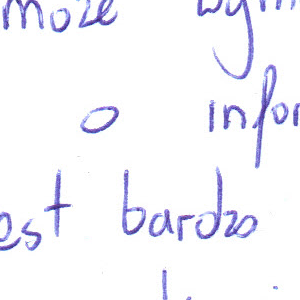 może wym
o infor
est bardzo